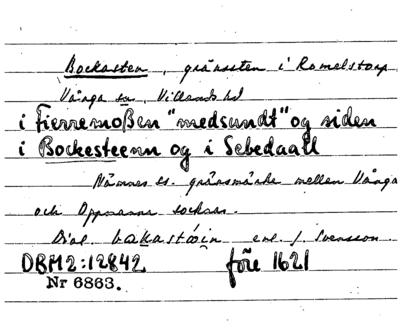 Bockasten, gränssten i Romelstorp
Vånga sn, Villands hd
i Fierremoßen "medsundt" og siden
i Bockesteenn og i Sebedaall
Nämnes ss. gränsmärke mellan Vånga
och Oppmanna socknar.
Dial. enl. J. Svensson.
DBM2:12842 före 1621
Nr 6863.